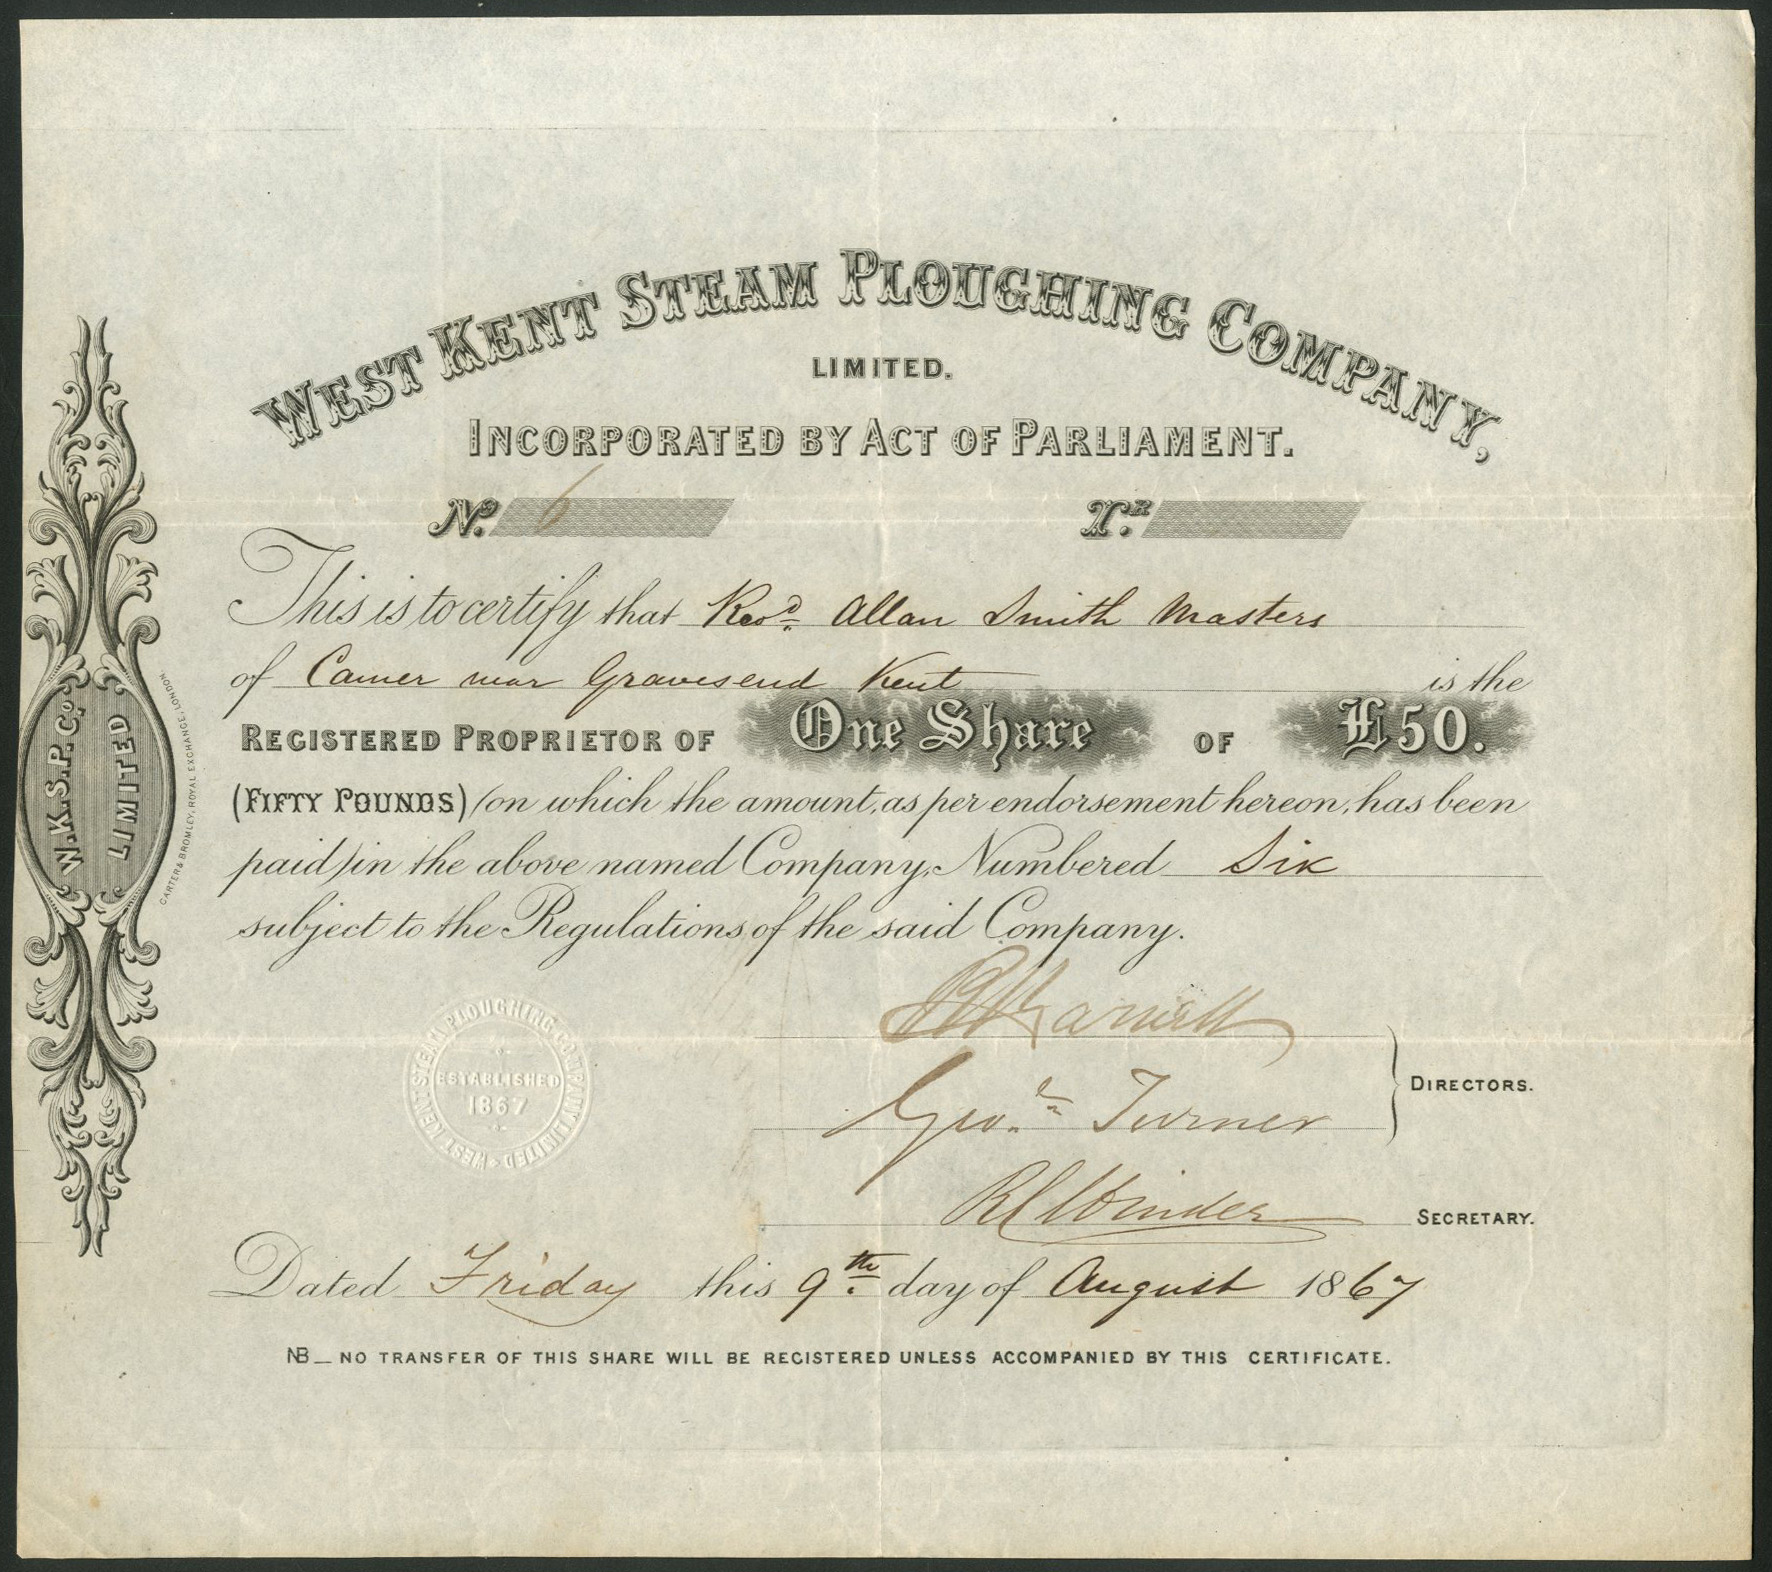 WEST KENT STEAM PLOUGHING COMPANY,
LIMITED.
INCORPORATED BY ACT OF PARLIAMENT.
No. 6 Tr.
This is to certify that Revd. Allan Smith Masters
of Camer near Gravesend Kent is the
REGISTERED PROPRIETOR OF One Share OF £50.
(FIFTY POUNDS) (on which the amount, as per endorsement hereon, has been
paid) in the above named Company, Numbered Six
subject to the Regulations of the said Company.
Turner
DIRECTORS.
SECRETARY.
Dated Friday this 9th. day of August 1867
NB_ NO TRANSFER OF THIS SHARE WILL BE REGISTERED UNLESS ACCOMPANIED BY THIS CERTIFICATE.
W.K.S.P. Co.
LIMITED
CARTER & BROMLEY, ROYAL EXCHANGE, LONDON.
WEST KENT STEAM PLOUGHING COMPANY LIMITED
ESTABLISHED
1867